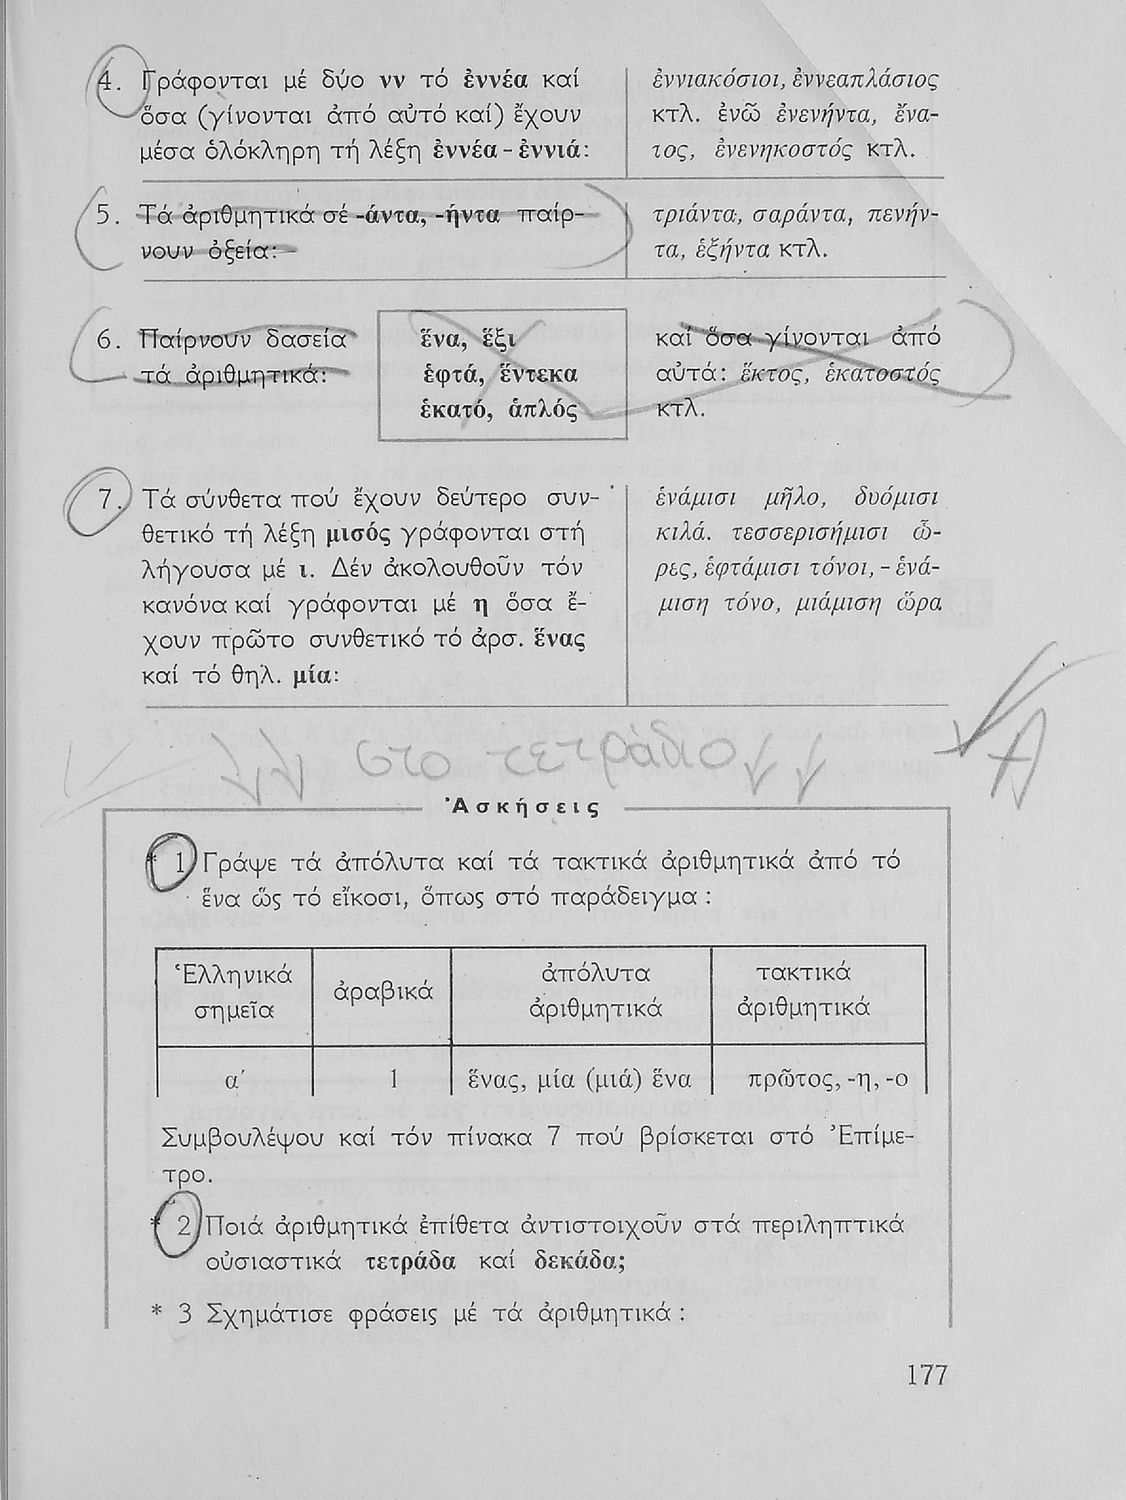 4. Γράφονται μέ δύο νν τό ἐννέα καί
ὅσα (γίνονται ἀπό αὐτό καί) ἔχουν
μέσα ὁλόκληρη τή λέξη ἐννέα - ἐννιά:
ἐννιακόσιοι, ἐννεαπλάσιος
κτλ. ἐνῶ ἐνενήντα, ἔνα-
τος, ἐνενηκοστός κτλ.
5. Τά ἀριθμητικά σέ -άντα, -ήντα παίρ-
νουν ὀξεία:
τριάντα, σαράντα, πενήν-
τα, ἑξήντα κτλ.
6. Παίρνουν δασεία
τά ἀριθμητικά:
ἕνα, ἕξι
ἑφτά, ἕντεκα
ἑκατό, ἁπλός
καί ὅσα γίνονται ἀπό
αὐτά: ἕκτος, ἑκατοστός
κτλ.
7. Τά σύνθετα πού ἔχουν δεύτερο συν-
θετικό τή λέξη μισός γράφονται στή
λήγουσα μέ ι. Δέν ἀκολουθοῦν τόν
κανόνα καί γράφονται μέ η ὅσα ἔ-
χουν πρῶτο συνθετικό τό ἀρσ. ἕνας
καί τό θηλ. μία:
ἑνάμισι μῆλο, δυόμισι
κιλά. τεσσερισήμισι ὧ-
ρες, ἑφτάμισι τόνοι, - ἑνά-
μιση τόνο, μιάμιση ὥρα
στο τετράδιο
Ἀσκήσεις
* 1 Γράψε τά ἀπόλυτα καί τά τακτικά ἀριθμητικά ἀπό τό
ἕνα ὥς τό εἴκοσι, ὅπως στό παράδειγμα :
Ἑλληνικά
σημεῖα
ἀραβικά
ἀπόλυτα
ἀριθμητικά
τακτικά
ἀριθμητικά
α΄ 1 ἕνας, μία (μιά) ἕνα πρῶτος, -η, -ο
Συμβουλέψου καί τόν πίνακα 7 πού βρίσκεται στό Ἐπίμε-
τρο.
* 2 Ποιά ἀριθμητικά ἐπίθετα ἀντιστοιχοῦν στά περιληπτικά
οὐσιαστικά τετράδα καί δεκάδα;
* 3 Σχημάτισε φράσεις μέ τά ἀριθμητικά :
177